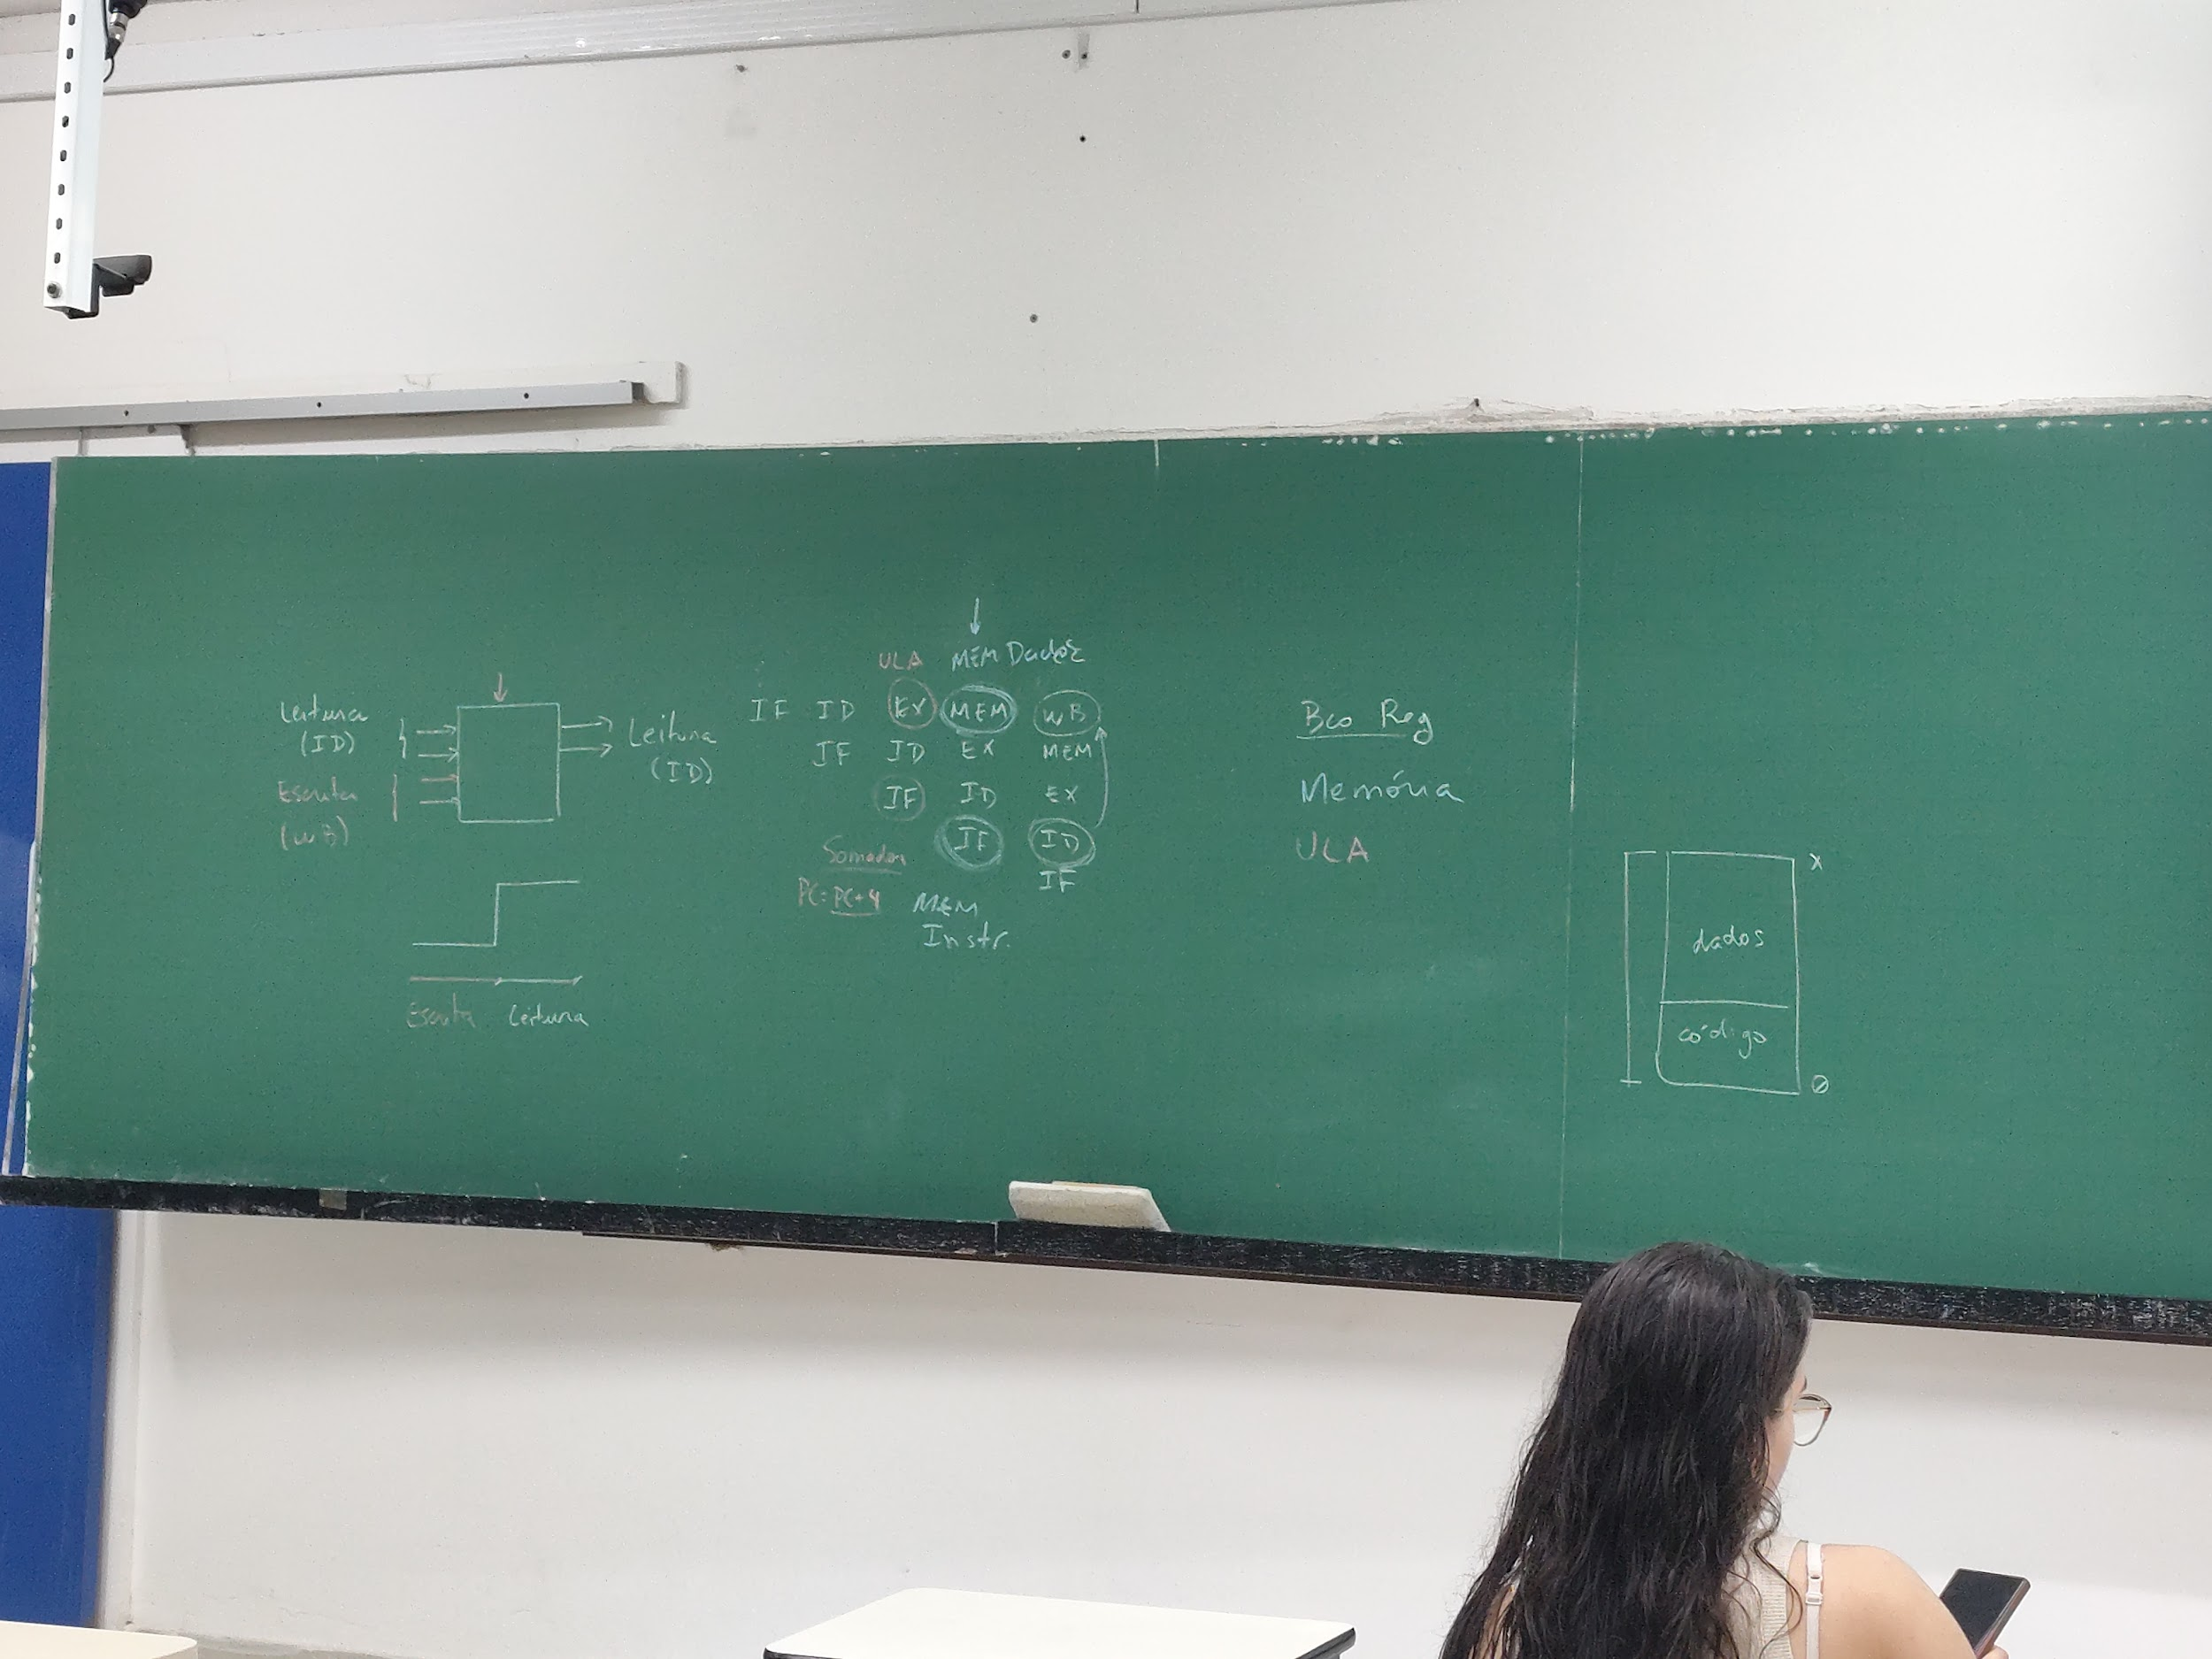 Leitura
(ID)
Escrita
(WB)
Leitura
(ID)
Escrita Leitura
ULA MEM Dados
IF ID EX MEM WB
IF ID EX MEM
IF ID EX
IF ID
IF
Somador
PC=PC+4
MEM
Instr.
Bco Reg
Memória
ULA
X
dados
código
0